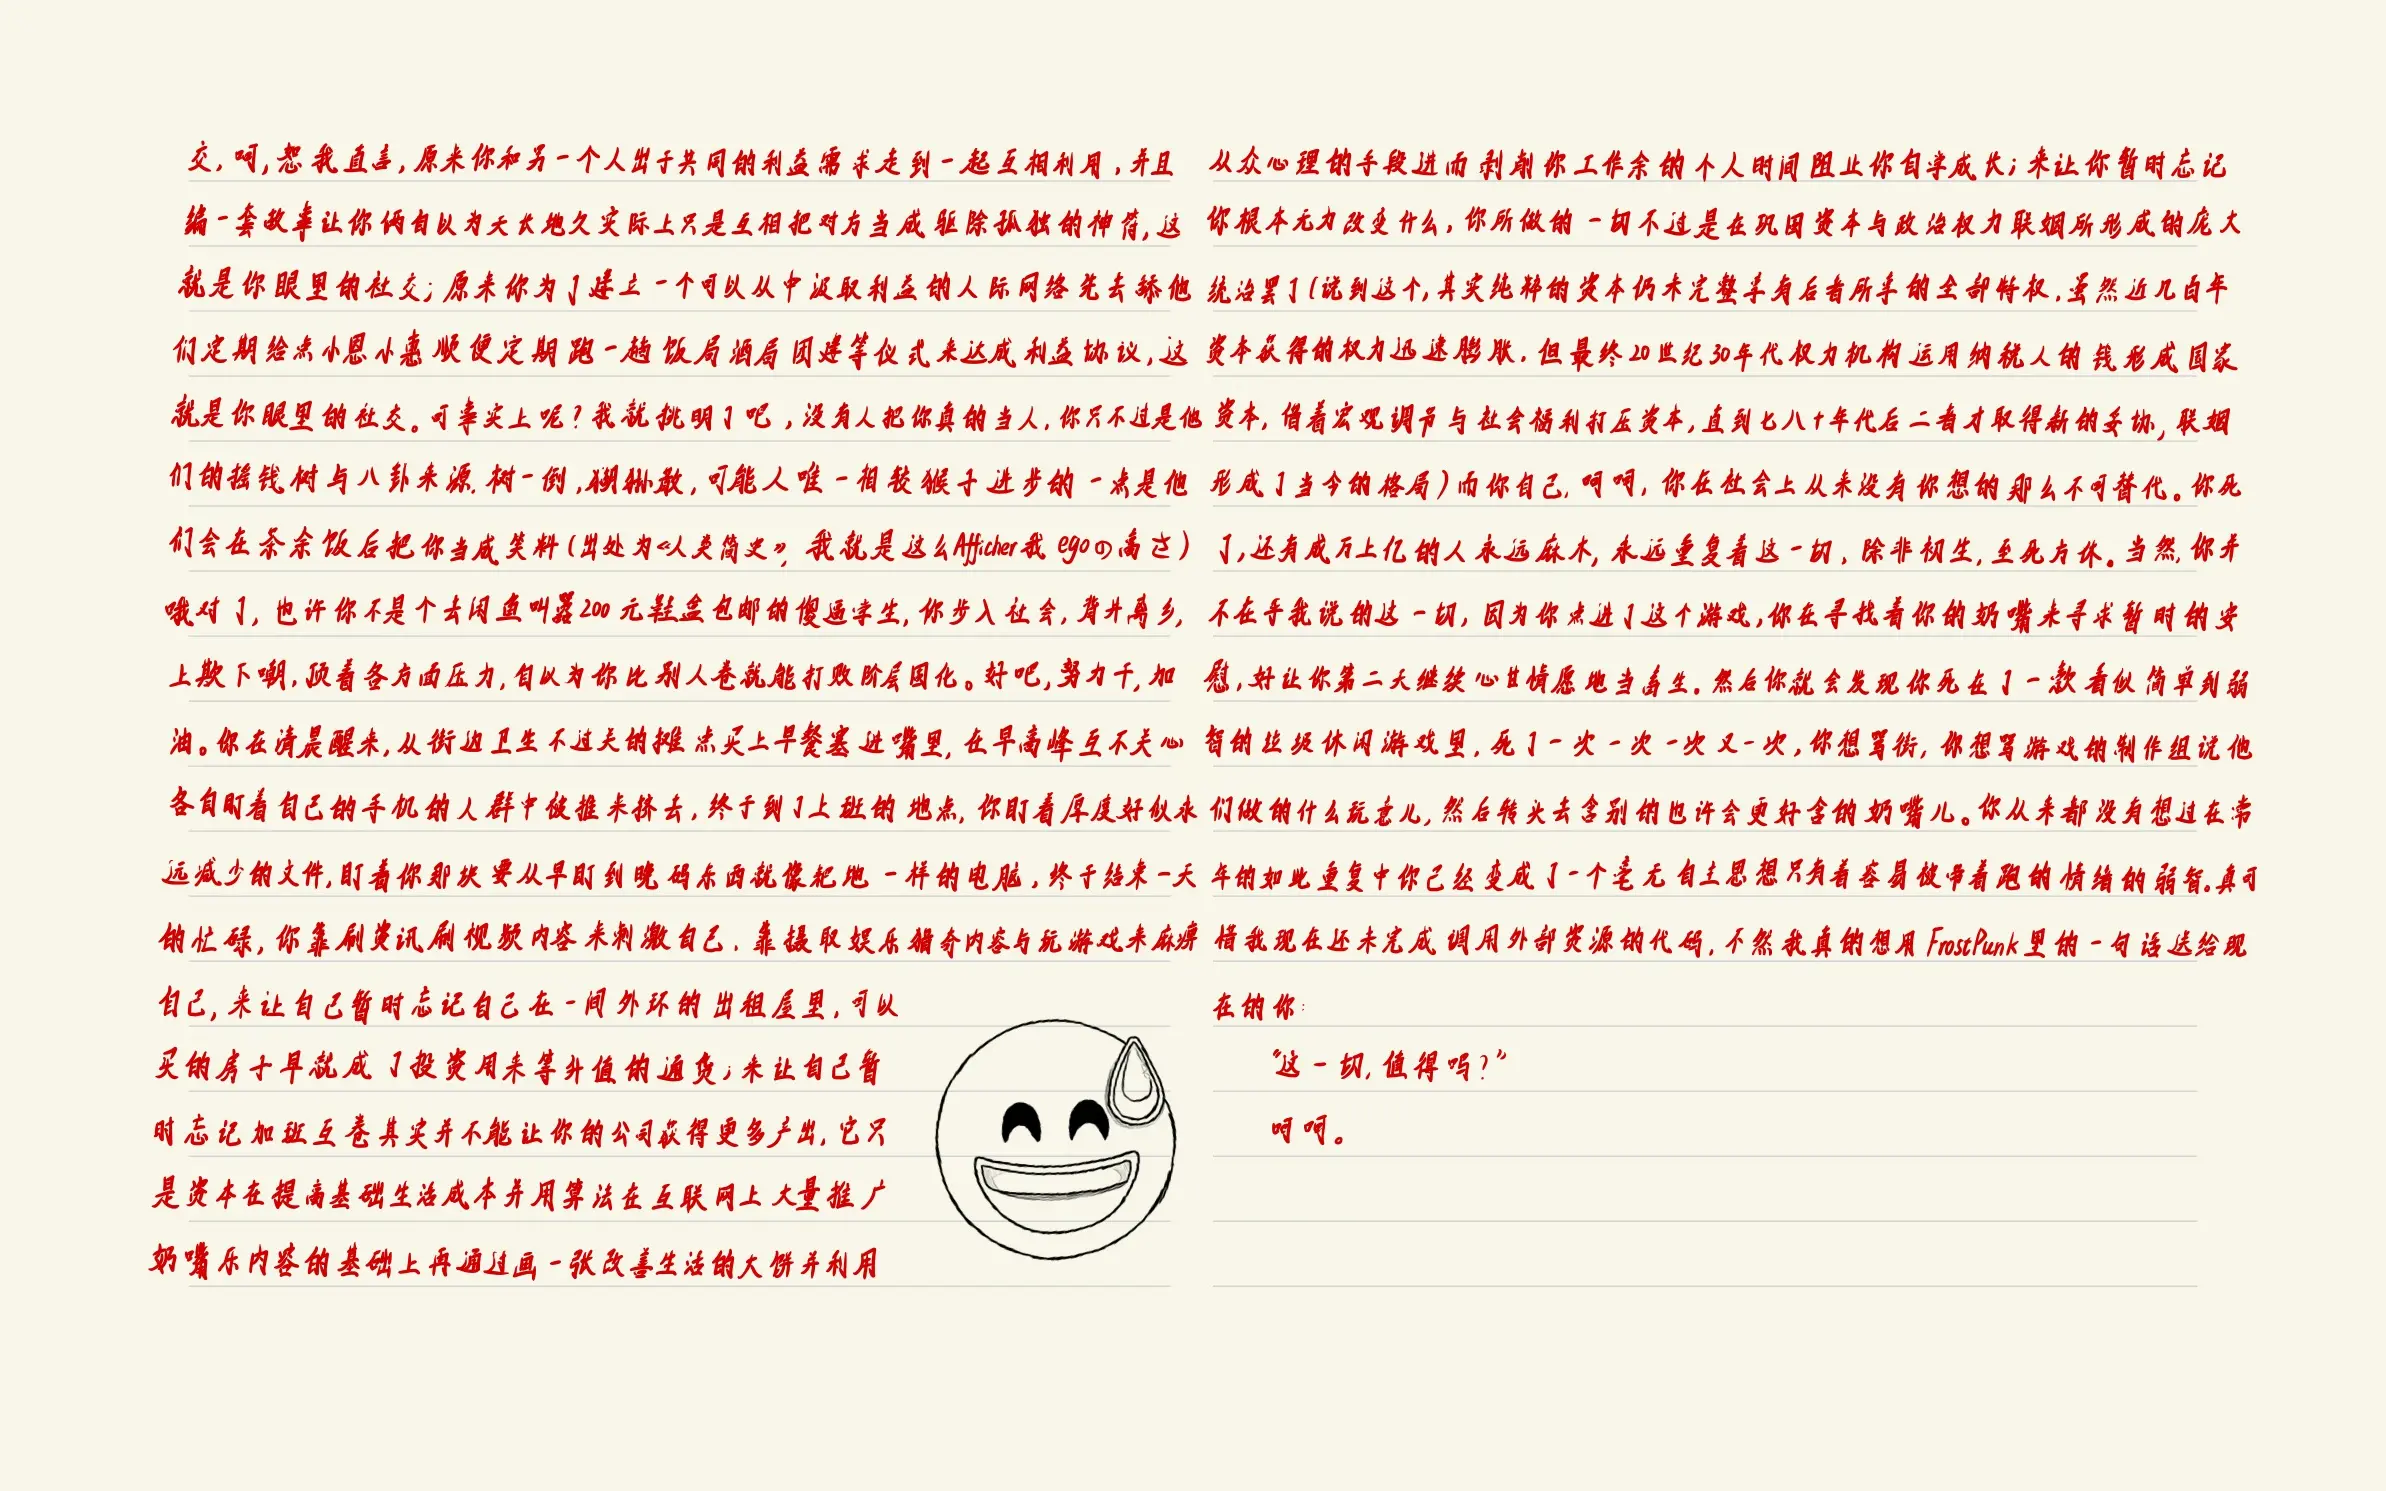 交，呵，恕我直言，原来你和另一个人出于共同的利益需求走到一起互相利用，并且
编一套故事让你俩自以为天长地久实际上只是互相把对方当成驱除孤独的神符，这
就是你眼里的社交；原来你为了建立一个可以从中汲取利益的人际网络先去舔他
们定期给点小恩小惠顺便定期跑一趟饭局酒局团建等仪式来达成利益协议，这
就是你眼里的社交。可事实上呢？我就挑明了吧，没有人把你真的当人，你只不过是他
们的摇钱树与八卦来源。树一倒，猢狲散，可能人唯一相较猴子进步的一点是他
们会在茶余饭后把你当成笑料（出处为《人类简史》，我就是这么Afficher我egoの高さ）
哦对了，也许你不是个去闲鱼叫嚣200元鞋盒包邮的傻逼学生，你步入社会，背井离乡，
上欺下嘲，顶着各方面压力，自以为你比别人卷就能打败阶层固化。好吧，努力干，加
油。你在清晨醒来，从街边卫生不过关的摊点买上早餐塞进嘴里，在早高峰互不关心
各自盯着自己的手机的人群中被推来挤去，终于到了上班的地点，你盯着厚度好似永
远减少的文件，盯着你那块要从早盯到晚码东西就像耙地一样的电脑，终于结束一天
的忙碌，你靠刷资讯刷视频内容来刺激自己，靠摄取娱乐猎奇内容与玩游戏来麻痹
自己，来让自己暂时忘记自己在一间外环的出租屋里，可以
买的房子早就成了投资用来等升值的通货；来让自己暂
时忘记加班互卷其实并不能让你的公司获得更多产出，它只
是资本在提高基础生活成本并用算法在互联网上大量推广
奶嘴乐内容的基础上再通过画一张改善生活的大饼并利用
从众心理的手段进而剥削你工作余的个人时间阻止你自学成长；来让你暂时忘记
你根本无力改变什么，你所做的一切不过是在巩固资本与政治权力联姻所形成的庞大
统治罢了（说到这个，其实纯粹的资本仍未完整享有后者所享的全部特权，虽然近几百年
资本获得的权力迅速膨胀，但最终20世纪30年代权力机构运用纳税人的钱形成国家
资本，借着宏观调节与社会福利打压资本，直到七八十年代后二者才取得新的妥协，联姻
形成了当今的格局）而你自己，呵呵，你在社会上从来没有你想的那么不可替代。你死
了，还有成万上亿的人永远麻木，永远重复着这一切，除非初生，至死方休。当然，你并
不在乎我说的这一切，因为你点进了这个游戏，你在寻找着你的奶嘴来寻求暂时的安
慰，好让你第二天继续心甘情愿地当畜生。然后你就会发现你死在了一款看似简单到弱
智的垃圾休闲游戏里，死了一次一次一次又一次，你想骂街，你想骂游戏的制作组说他
们做的什么玩意儿，然后转头去含别的也许会更好含的奶嘴儿。你从来都没有想过在常
年的如此重复中你已经变成了一个毫无自主思想只有着容易被带着跑的情绪的弱智。真可
惜我现在还未完成调用外部资源的代码，不然我真的想用FrostPunk里的一句话送给现
在的你：
“这一切，值得吗？”
呵呵。